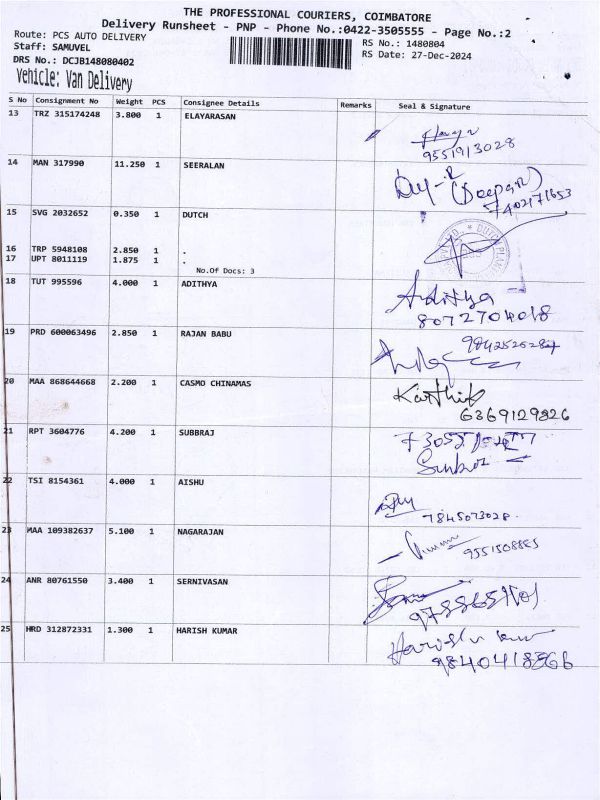 THE PROFESSIONAL COURIERS, COIMBATORE
Delivery Runsheet - PNP - Phone No.:0422-3505555 - Page No.:2
Route: PCS AUTO DELIVERY
RS No.: 1480804
Staff: SAMUVEL
RS Date: 27-Dec-2024
DRS No.: DCJB148080402
Vehicle: Van Delivery
S No Consignment No Weight PCS Consignee Details Remarks Seal & Signature
13 TRZ 315174248 3.800 1 ELAYARASAN
9551913028
14 MAN 317990 11.250 1 SEERALAN
(Deepan)
7402171653
15 SVG 2032652 0.350 1 DUTCH
16 TRP 5948108 2.850 1 .
17 UPT 8011119 1.875 1 .
No.Of Docs: 3
18 TUT 995596 4.000 1 ADITHYA
Adithya
8072704018
19 PRD 600063496 2.850 1 RAJAN BABU
20 MAA 868644668 2.200 1 CASMO CHINAMAS
Karthik
6369129826
21 RPT 3604776 4.200 1 SUBBRAJ
22 TSI 8154361 4.000 1 AISHU
7845073028
23 MAA 109382637 5.100 1 NAGARAJAN
24 ANR 80761550 3.400 1 SERNIVASAN
25 HRD 312872331 1.300 1 HARISH KUMAR
Harish